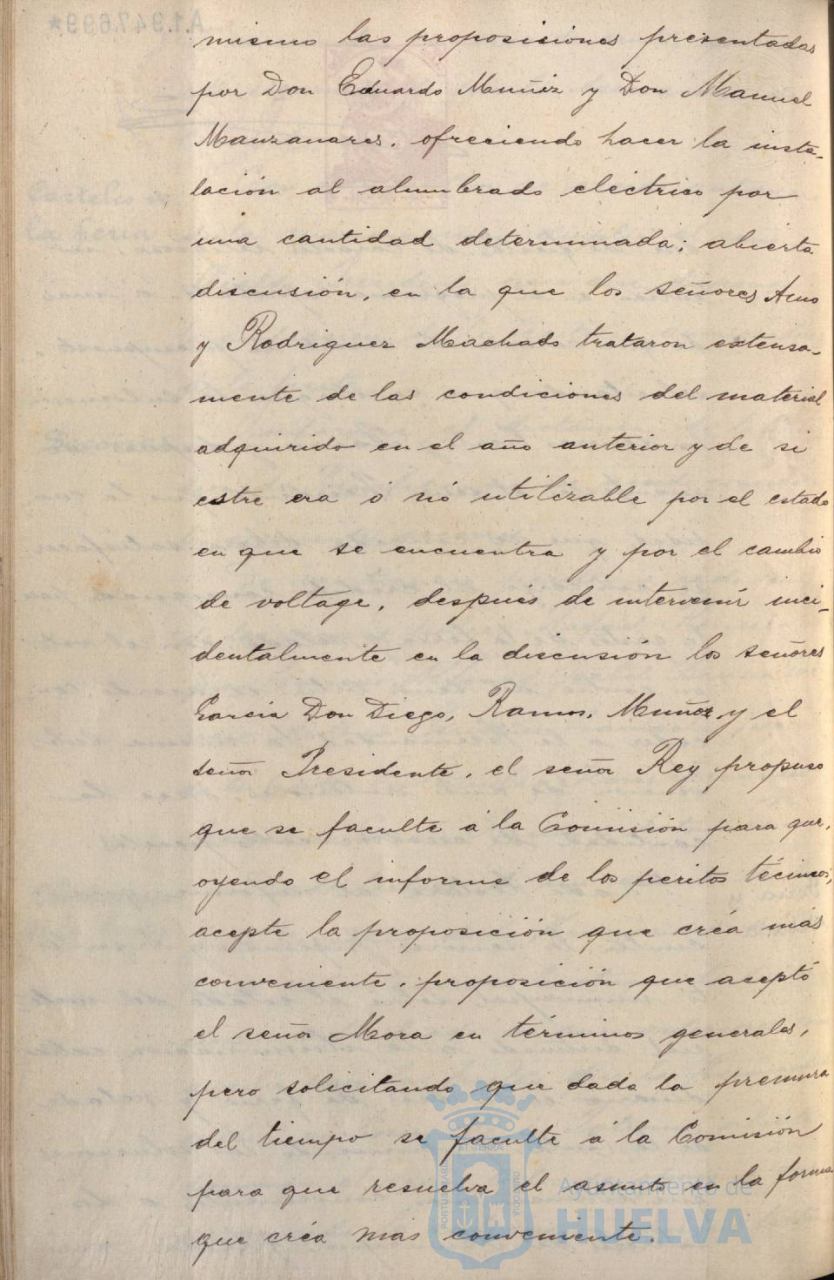 mismo las proposiciones presentadas
por Don Eduardo Muñiz y Don Manuel
Manzanares, ofreciendo hacer la insta-
lación al alumbrado eléctrico por
una cantidad determinada; abierta
discusión, en la que los señores
y Rodriguez Machado trataron extensa-
mente de las condiciones del material
adquirido en el año anterior y de si
estre era ó nó utilizable por el estado
en que se encuentra y por el cambio
de voltage, después de intervenir inci-
dentalmente en la discusión los señores
Garcia Don Diego, Ramos, Muñoz y el
señor Presidente, el señor Rey propuso
que se faculte á la Comisión para que,
oyendo el informe de los peritos técnicos,
acepte la proposición que créa más
conveniente, proposición que aceptó
el señor Mora en términos generales,
pero solicitando que dada la premura
del tiempo se faculte á la Comisión
para que resuelva el asunto en la forma
que créa mas conveniente.
Ayuntamiento de
HUELVA
A.1.947.699*